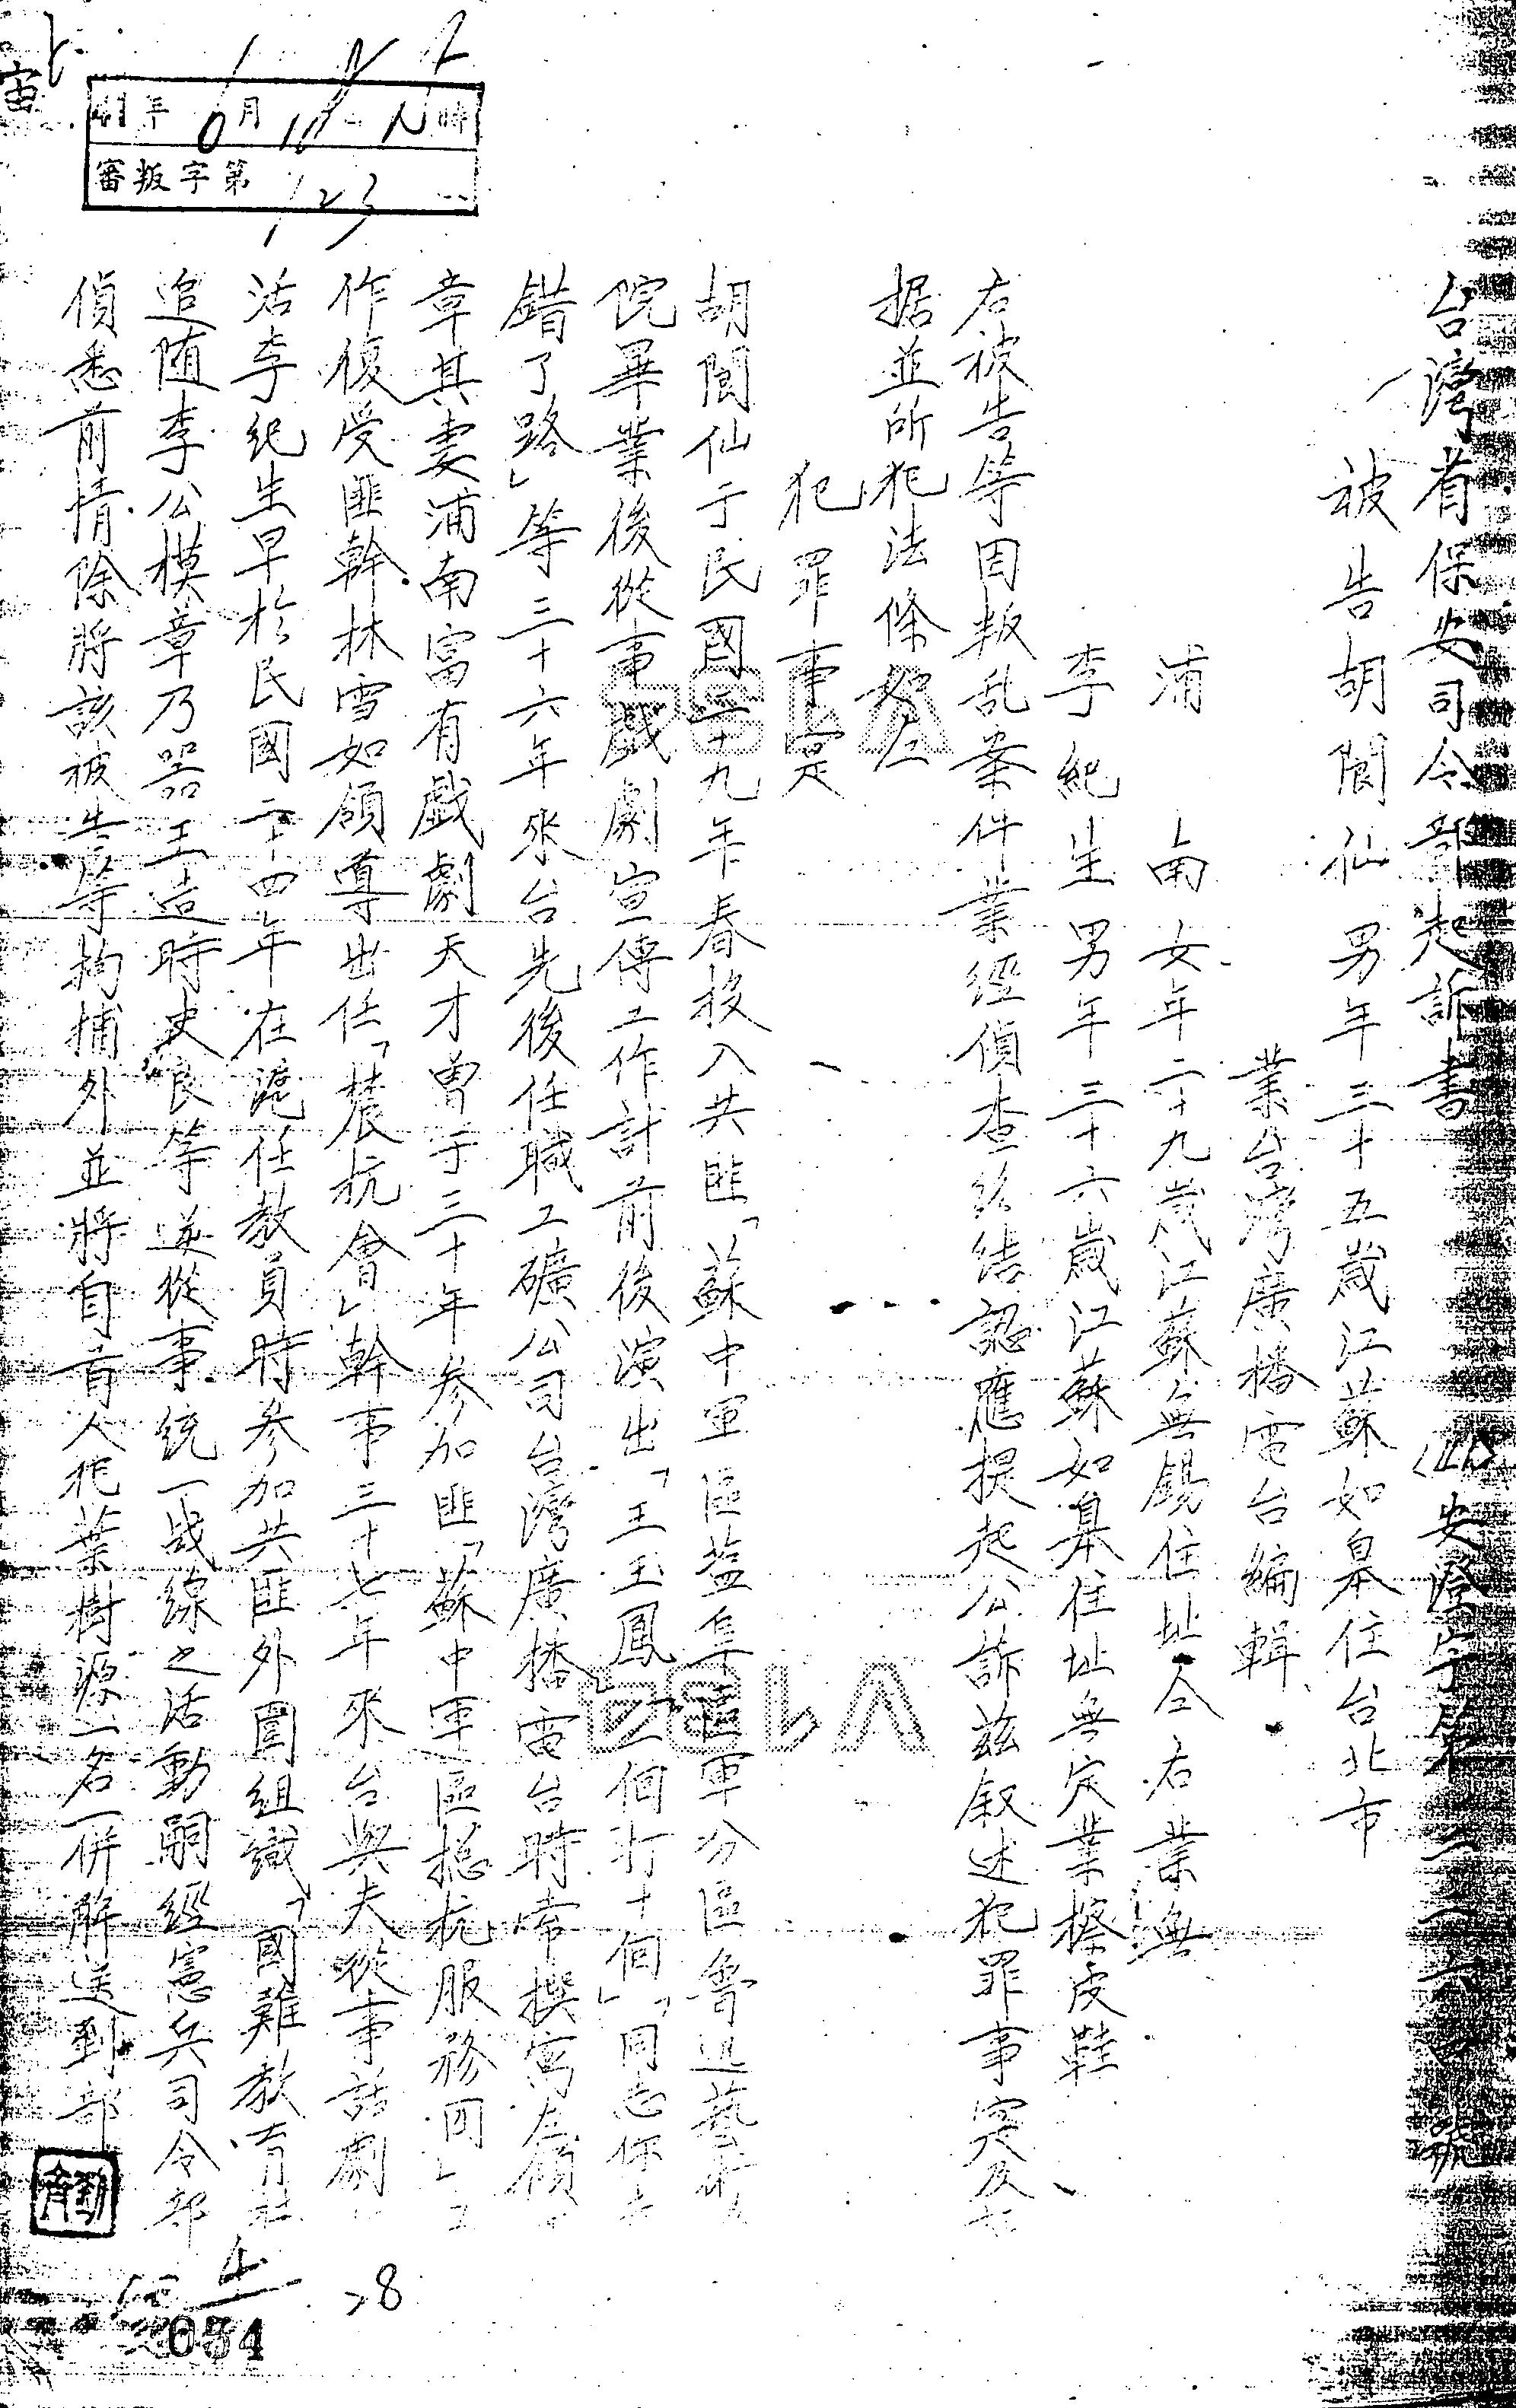 台灣省保安司令部起訴書 (41)安澄字第二二六四號
被告胡閬仙 男年三十五歲江蘇如皋住台北市
業台灣廣播電台編輯
浦南女年二十九歲江蘇無錫住址仝右業無
李紀生男年三十六歲江蘇如皋住址無定業擦皮鞋
右被告等因叛乱案件業經偵查終結認應提起公訴茲叙述犯罪事實及
据並所犯法條如左
犯罪事實
胡閬仙于民國二十九年春投入共匪「蘇中軍區盐阜區軍分區魯迅藝術
院畢業後從事戲劇宣傳工作計前後演出「王玉鳳」「一個打十個」「同志你
錯了路」等三十六年來台先後任職工礦公司台灣廣播電台時常撰寫左傾
章其妻浦南富有戲劇天才曾于三十年参加匪「蘇中軍區總抗服務団」工
作復受匪幹林雪如領導出任「農抗會」幹事三十七年來台與夫從事話劇
活李紀生早於民國二十四年在滬任教員時参加共匪外圍組織「國難教育社
追随李公樸章乃器王造時史良等遂從事統一战線之活動嗣經憲兵司令部
偵悉前情除將該被告等拘捕外並將自首人犯葉樹源一名一併解送到部
41年6月10 時
審叛字第123
28
054